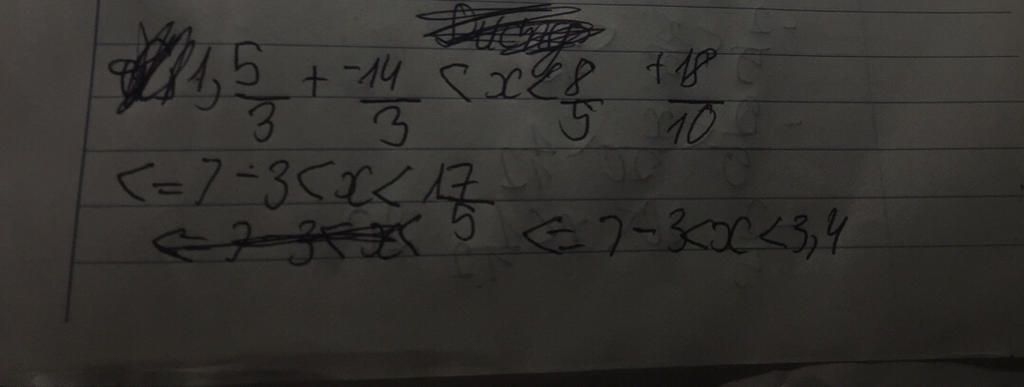 1, 5/3 + -14/3 < x < 8/5 + 18/10
<=> -3 < x < 17/5
<=> -3 < x < <=> -3 < x < 3,4